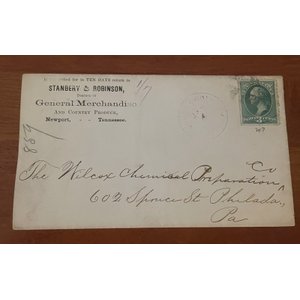 If not called for in TEN DAYS return to
STANBERY & ROBINSON,
Dealers in
General Merchandise
AND COUNTRY PRODUCE,
Newport, - - Tennessee.
1/7
859
The Wilcox Chemical Preparation Co
602 Spruce St Philada,
Pa